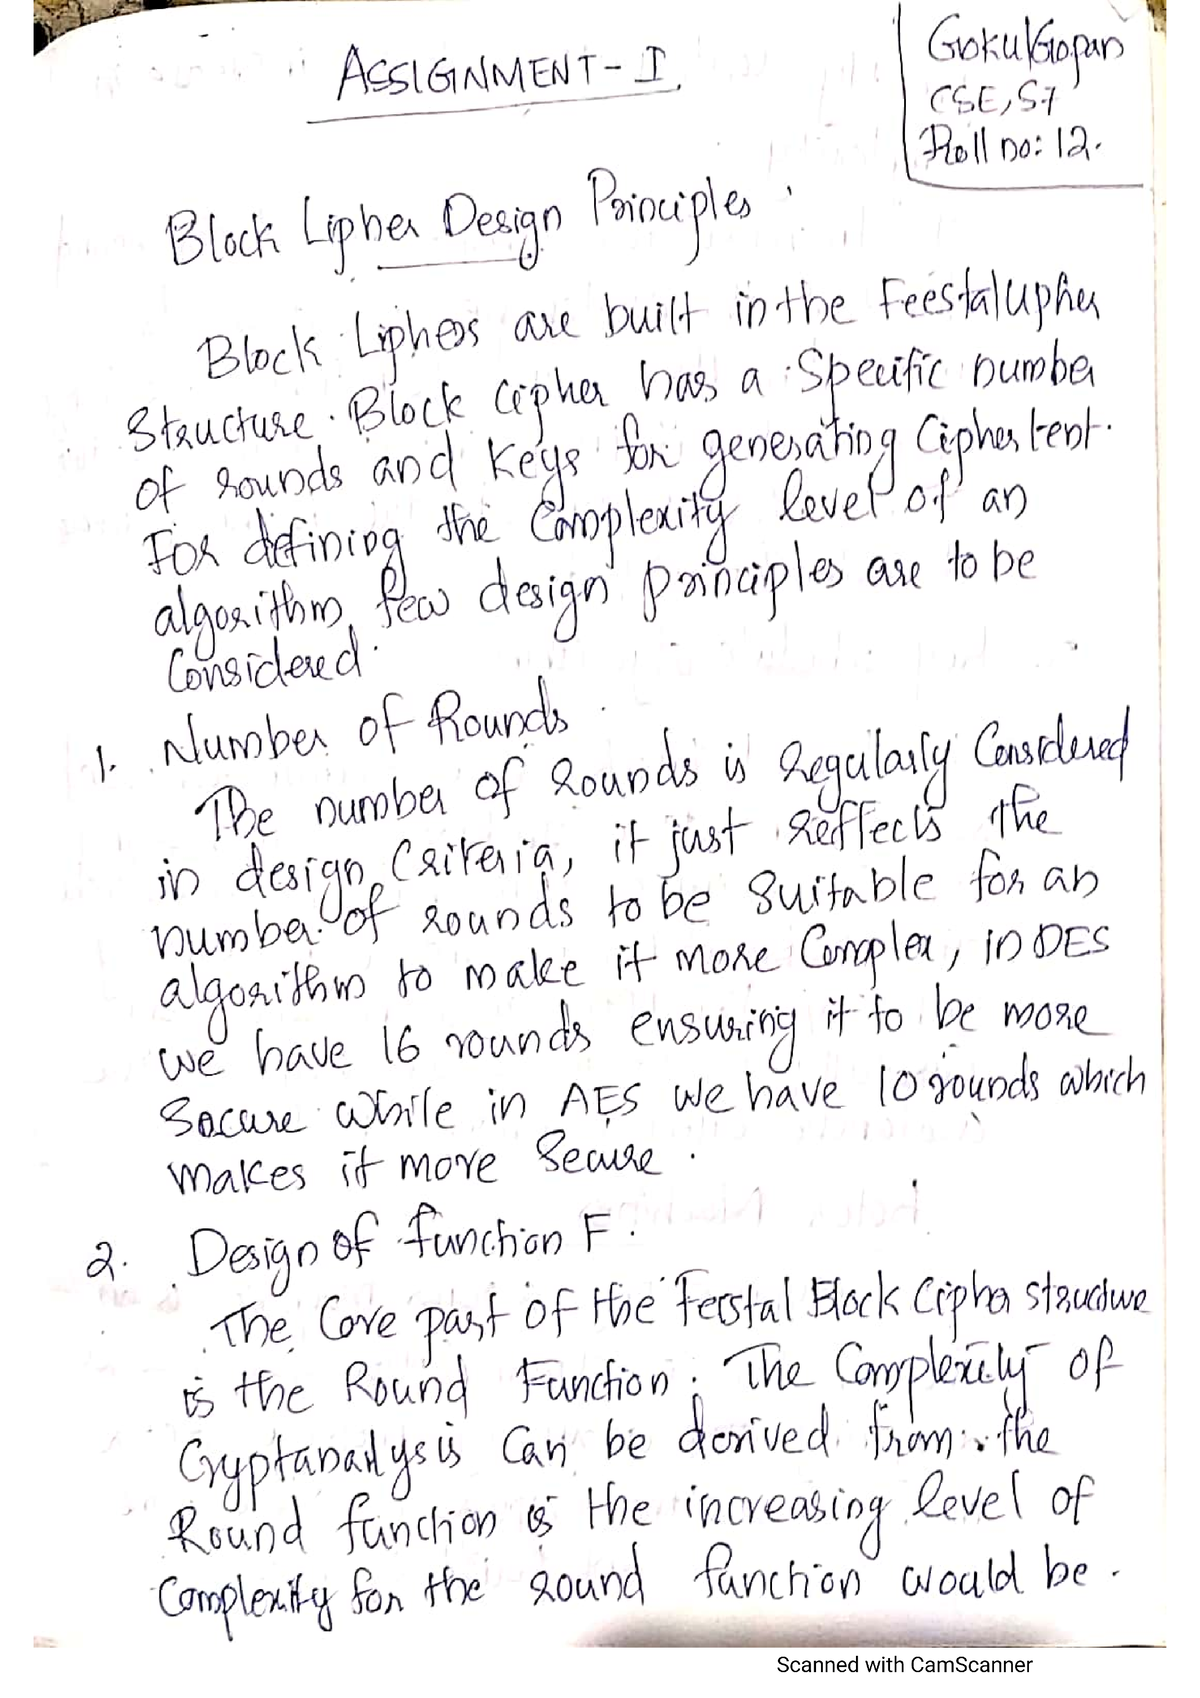 ASSIGNMENT-I
Gokul Gopan
CSE, S7
Roll no: 12.
Block Cipher Design Principles
Block Ciphers are built in the Feestal cipher
Structure. Block cipher has a Specific number
of rounds and keys for generating Ciphertext.
For defining the Complexity level of an
algorithm few design principles are to be
Considered.
1. Number of Rounds
The number of Rounds is Regularly Considered
in design Criteria, it just reffects the
number of rounds to be Suitable for an
algorithm to make it more Complex, in DES
we have 16 rounds ensuring it to be more
Secure while in AES we have 10 rounds which
makes it more Secure.
2. Design of function F.
The Core part of the Feistal Block Cipher structure
is the Round Function. The Complexity of
Cryptanalysis Can be derived from the
Round function is the increasing level of
Complexity for the round function would be.
Scanned with CamScanner